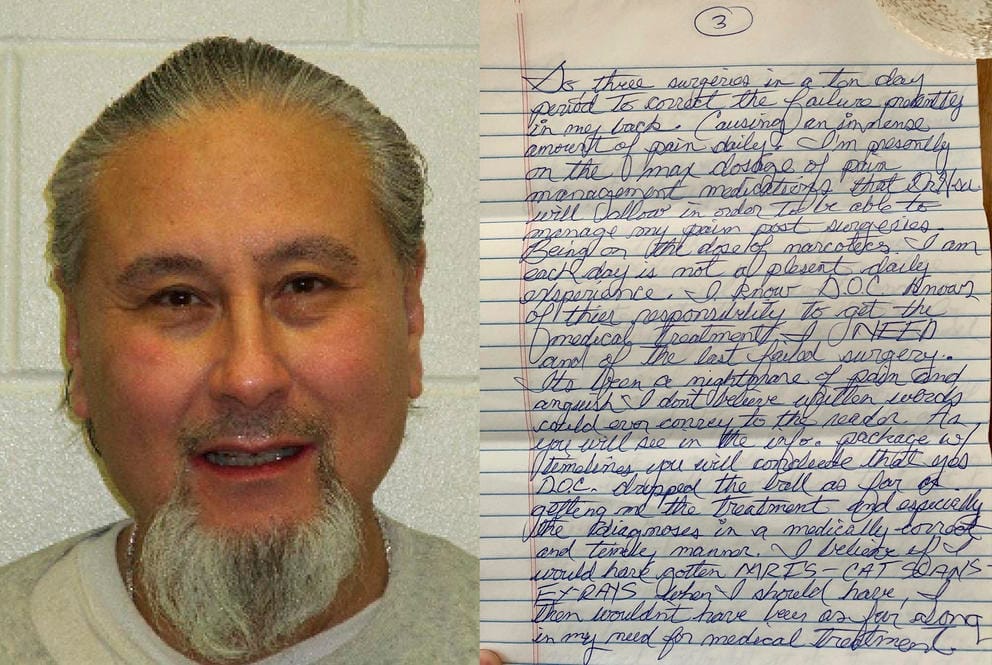 3
So, three surgeries in a ten day
period to correct the failure presently
in my back. Causing an immense
amount of pain daily. I'm presently
on the max dosage of pain
management medications that Dr.
will allow in order to be able to
manage my pain post surgeries.
Being on the dose of narcotics I am
each day is not a plesent daily
experiance. I know D.O.C knows
of thier responsibility to get the
medical treatment I NEED
and of the last failed surgery.
Its been a nightmare of pain and
anguish I dont believe written words
could ever convey to the reader. As
you will see in the info. package w/
timelines you will conclude that yes
D.O.C. dropped the ball as far as
getting me the treatment and especially
the diagnoses in a medically correct
and timely manner. I believe if I
would have gotten MRI'S-CAT SCANS-
EX-RAYS when I should have, I
then wouldn't have been as far along
in my need for medical treatment